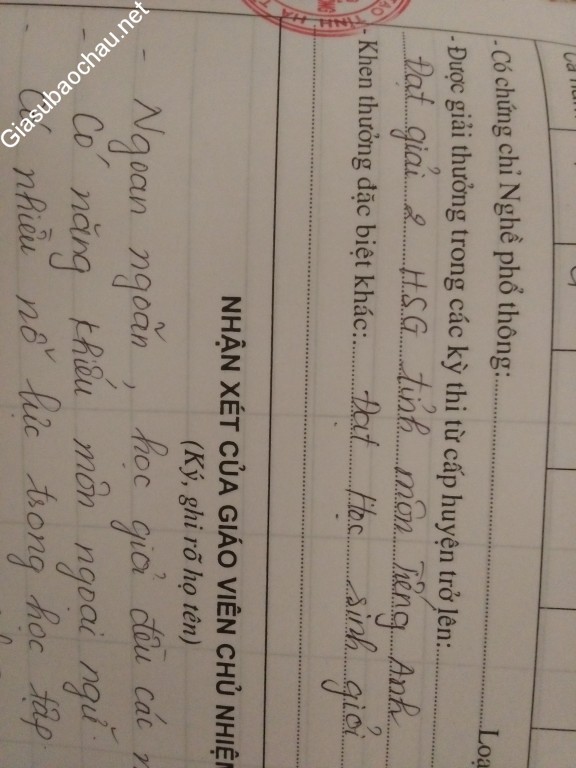 - Có chứng chỉ Nghề phổ thông:
Loạ
- Được giải thưởng trong các kỳ thi từ cấp huyện trở lên:
Đạt giải 2 HSG tỉnh môn Tiếng Anh
- Khen thưởng đặc biệt khác: Đạt Học sinh giỏi
NHẬN XÉT CỦA GIÁO VIÊN CHỦ NHIỆM
(Ký, ghi rõ họ tên)
- Ngoan ngoãn, học giỏi đều các m
- Có năng khiếu môn ngoại ngữ.
- Có nhiều nỗ lực trong học tập
TỈNH HÀ T
Giasubaochau.net